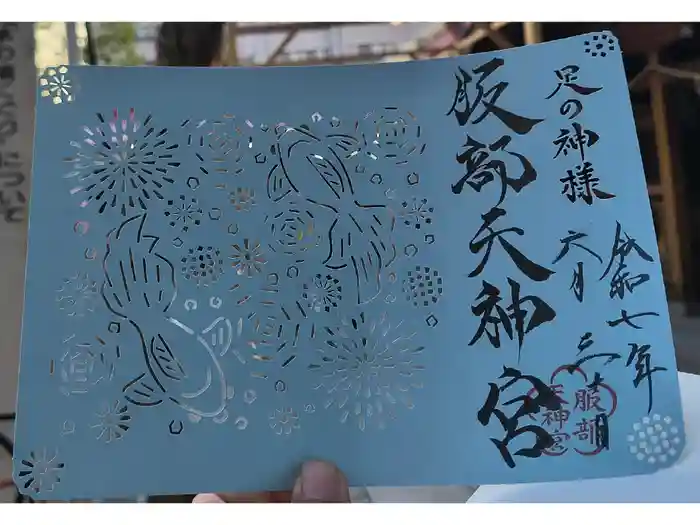 足の神様
服部天神宮
令和七年
六月三日
服部
天神宮
について